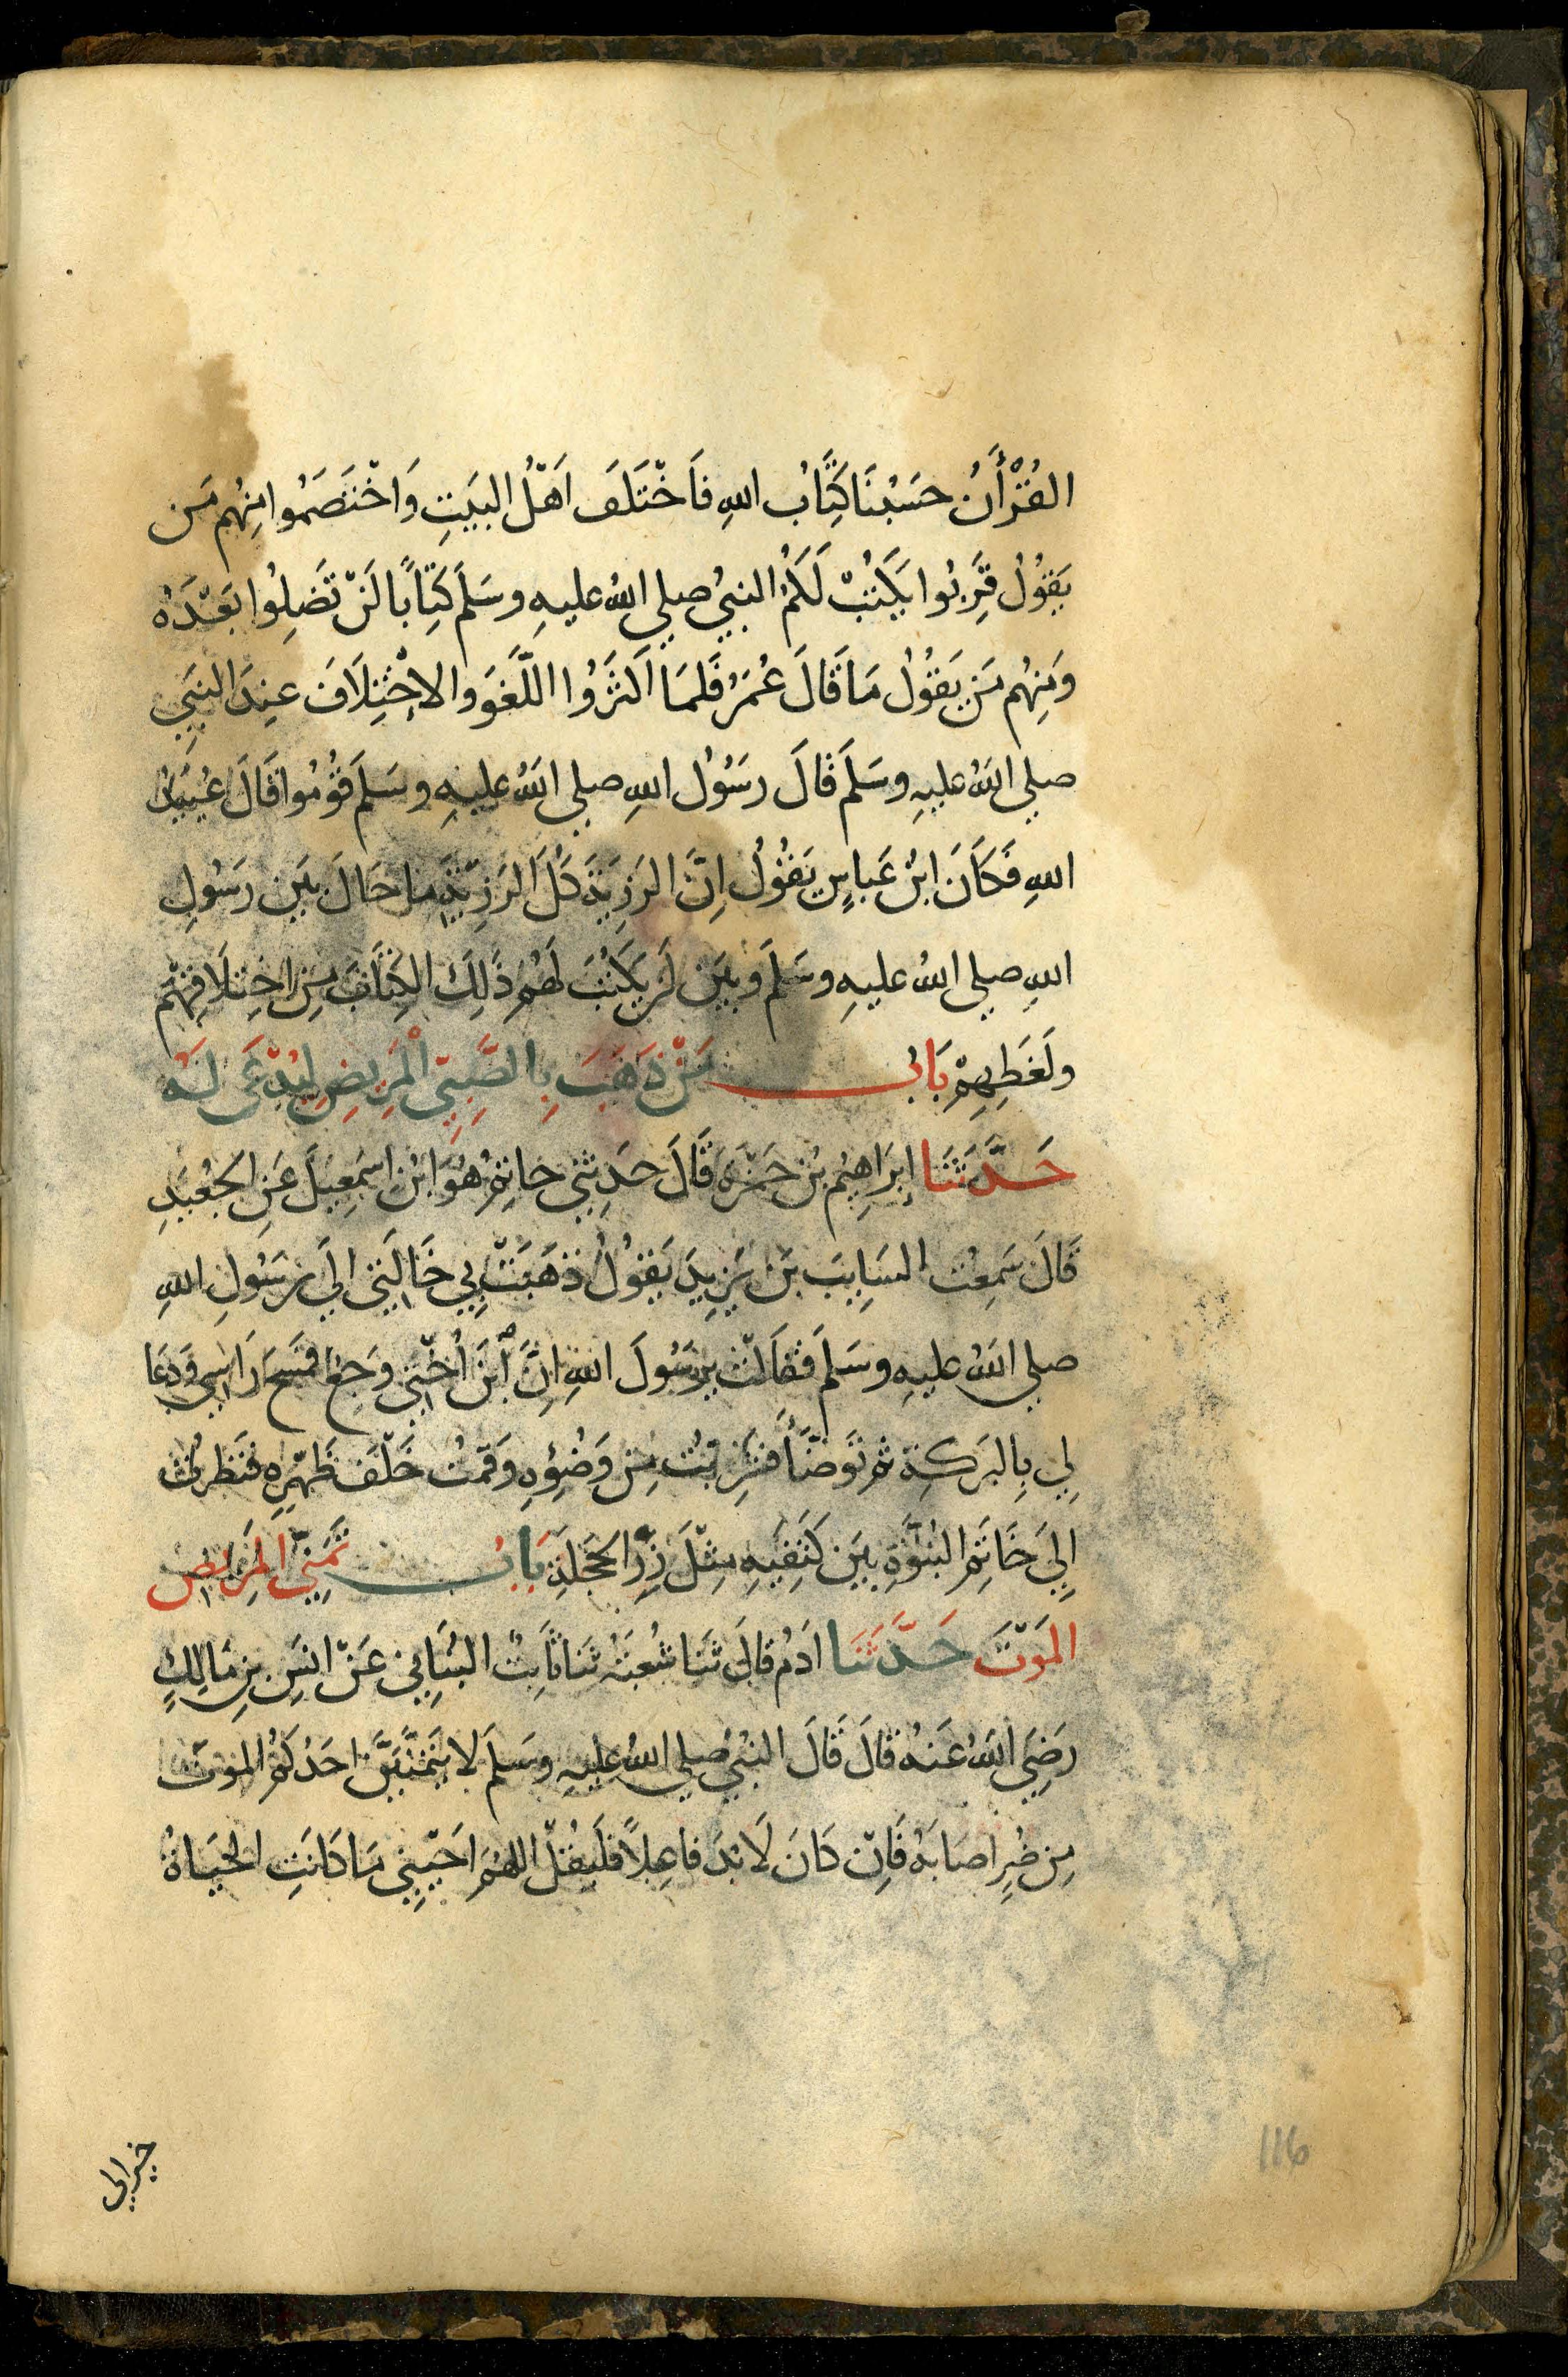 القُرْأَنُ حَسَبْنَا كِتَّابُ اللهِ فَاخْتَلَفَ اَهْلُ البَيَتِ وَاخْتَصَمُوا مِنِهُم مَن
يَقوُلُ قَرِّبُوا يَكَتُبْ لَكَمُ النبيُ صلي اللهُ عليهِ وسَلمَ كَتِابًا لَنْ تَضَلِوُا بَعْدَهُ
وَمِنِهُم مَن يَقوُلُ مَا قَالَ عُمَرُ فَلمَا اَكثَرَوُا اللَّغَوَ والاخْتِلَافَ عِندَ النبَيِ
صلي اللهُ عليهِ وسَلمَ قَالَ رسَوُلُ اللهِ صلي اللهُ عليهِ وسَلمَ قوُمُوا قَالَ عُبَيدُ
اللهِ فَكَانَ ابنُ عَباسٍ يَقوُلُ اِنَّ الرَزِيَةَ كُلَ الرَزِيَّةِ ما حَالَ بيَن رسَوُلِ
اللهِ صلي اللهُ عليهِ وسَلمَ وبيَن لَم يَكَتُبَ لَهُم ذَلِكَ الكِتَابَ مِن اختِلَافِهِم
ولَغَطِهِمْ بَابُ مَنْ ذَهَبَ بِالصَّبِيّ الْمَرِيضِ لِيُدْعَى لَه
حَدَّثَنَا إبرَاهِيم بُن حَمَزَة قَالَ حَدثَنِي حاتِمُ هُوَ ابنُ اسمَعِيلَ عَنِ الجُعَيدِ
قَالَ سَمِعُت السَايبَ بَن يَزِيدَ يَقوُلُ ذَهَبَتْ بِي خَالَتِي اليَ رسَوُلِ اللهِ
صلي اللهُ عليهِ وسَلمَ فَقاَلتْ يرسَوُلَ اللهِ اِنَّ ابَن اُخْتي وَجِعٌ فمَسَحَ رَاسِي وَدَعَا
لِي بِالبَركةِ ثم تَوضَّأَ فشَرِبتُ مِن وَضُوُءهِ وَقمَتُ خَلْفَ ظَهْرِهِ فنَظرتُ
اِليَ خَاتَمِ النبُوَّةِ بَيَن كَتِفَيهِ مِثْلَ زِرِّ الحَجَلةِ بَابُ تَمَنِّي المَرِيضِ
المَوْتَ حَدَّثَنَا ادَمُ قالَ ثَنا شُعبَةُ ثَنا ثَابِتُ البُنَانِي عَنْ انَسِ بنِ مَالِكٍ
رَضِيَ اللهُ عَنهُ قَالَ قَالَ النبيُ صلي اللهُ عليهِ وسَلمَ لا يَتمَنَّيَنَّ احَدُكَمُ الموتَ
مِن ضُرٍ اصَابَهُ فَاِنْ كَانَ لَا بُدَ فاعِلاً فَليَقُلْ اللهُمَ احَيِنِي مَا كَانَتِ الحَيَاةُ
خيرالي
116